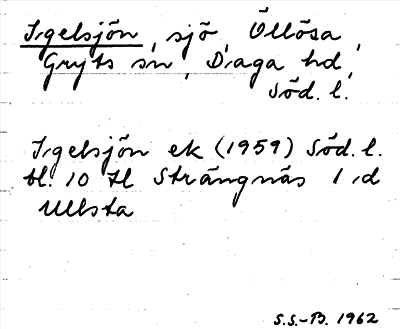 Igelsjön, sjö, Öllösa,
Gryts sn, Daga hd,
Söd. l.
Igelsjön ek (1959) Söd. l.
bl. 10 H Strängnäs 1 d
Ullsta
S.S.-B. 1962